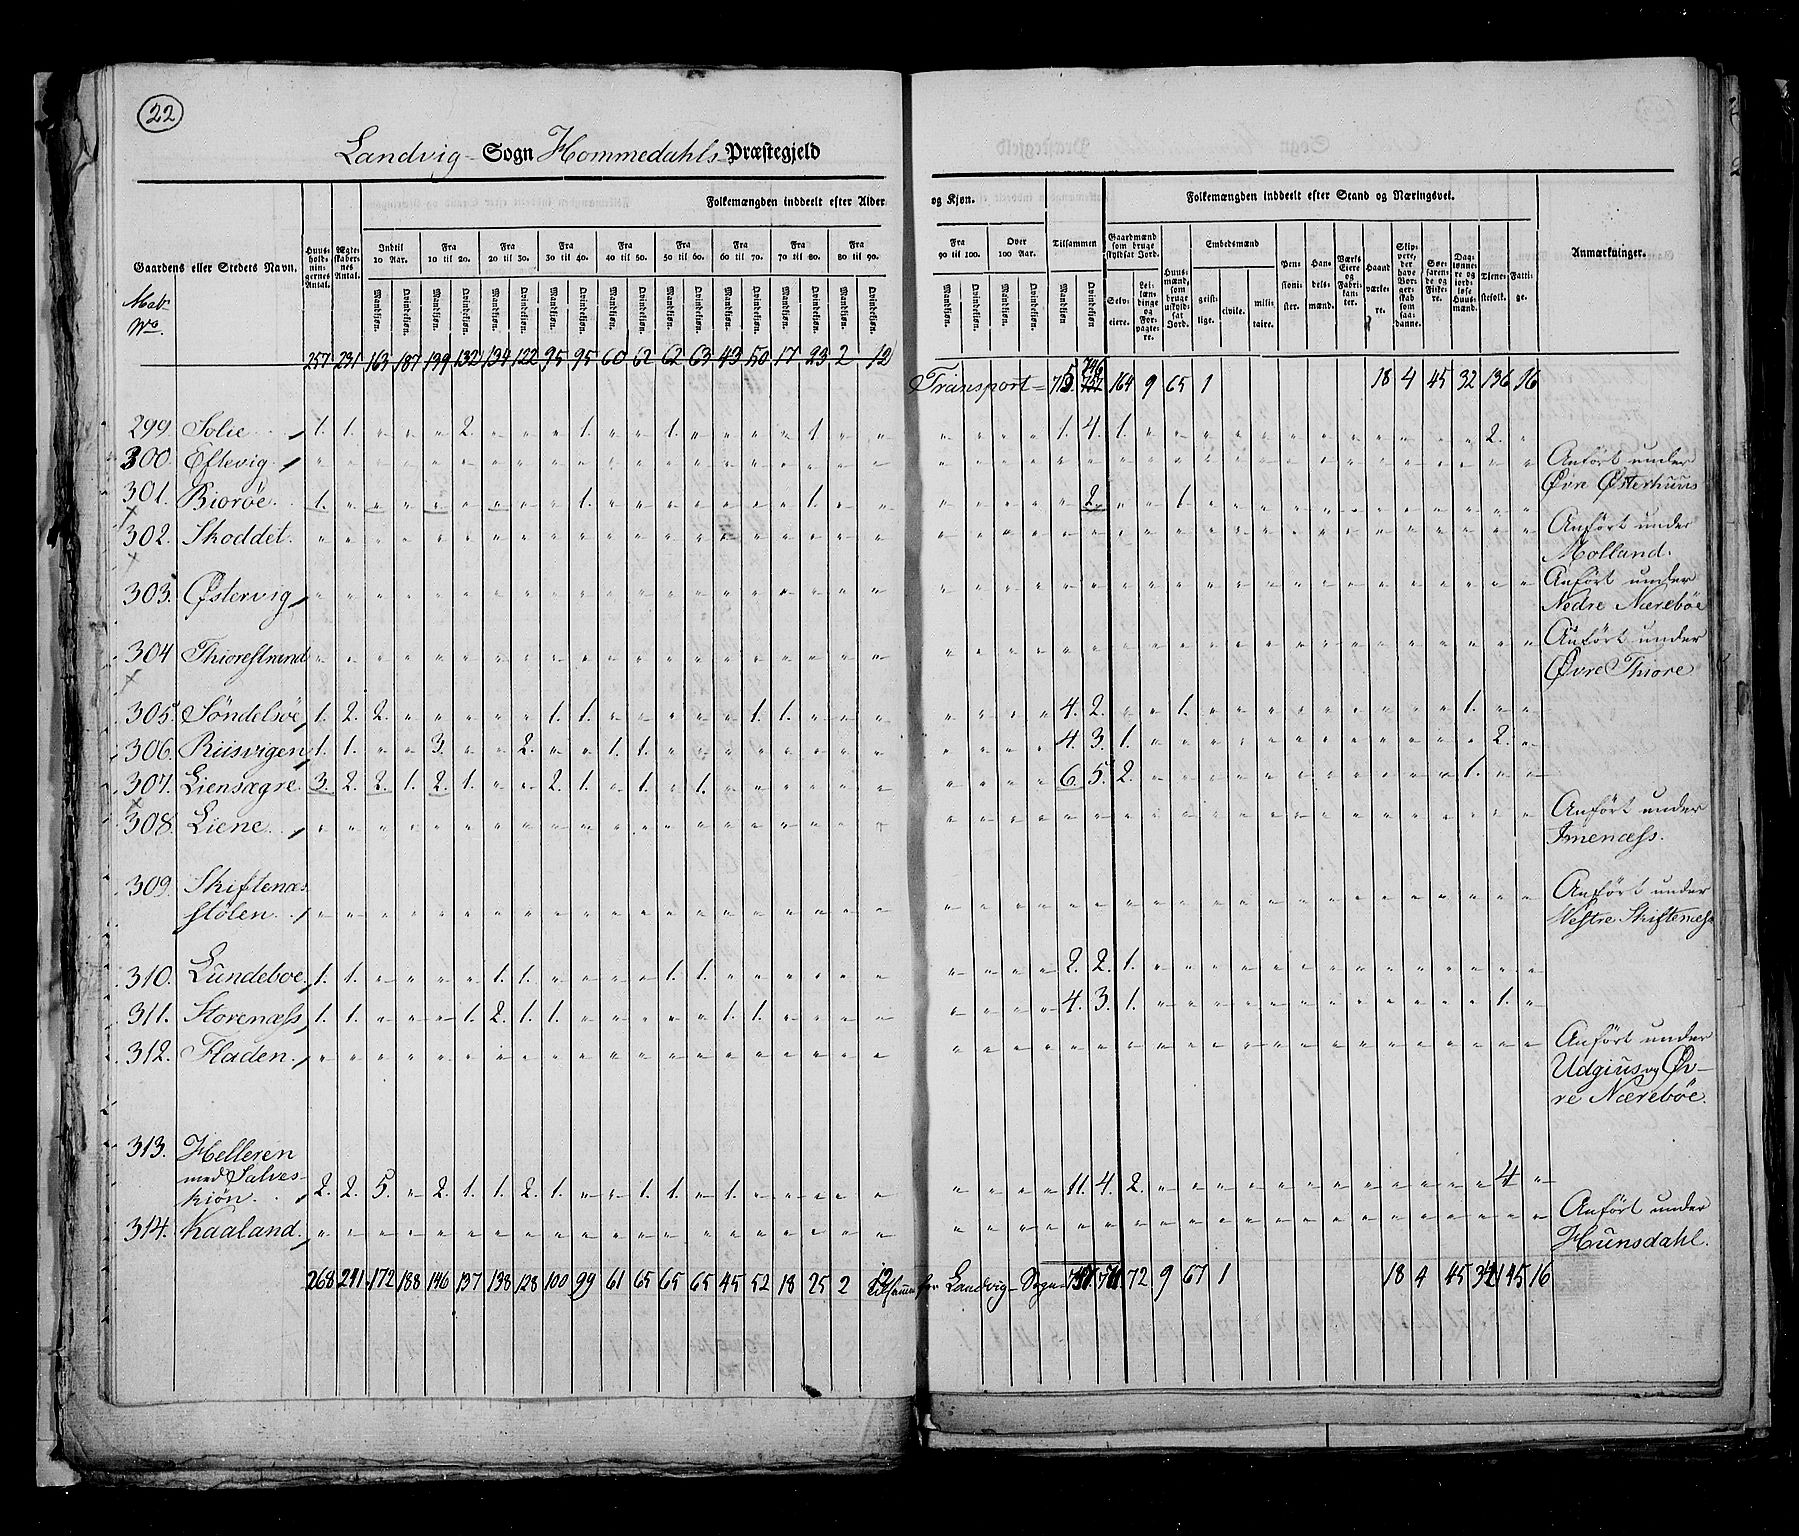 22
Landvig - Sogn Hommedahls Præstegjeld
Folkemængden inddeelt efter Alder og Kjøn.
Folkemængden inddeelt efter Stand og Næringsvei.
Gaardens eller Stedets Navn.
Huus-holdnin-gernes Antal.
Ægte-skaber-nes Antal.
Indtil 10 Aar.
Fra 10 til 20.
Fra 20 til 30.
Fra 30 til 40.
Fra 40 til 50.
Fra 50 til 60.
Fra 60 til 70.
Fra 70 til 80.
Fra 80 til 90.
Fra 90 til 100.
Over 100 Aar.
Tilsammen
Mandkjøn. Qvindekjøn.
Gaardmænd som bruge skyldsat Jord.
Selv-eiere.
Lei-læn-dinge og For-pagte-re.
Huus-mænd, som bruge uskyld-sat Jord.
Embedsmænd
geist-lige.
civile.
mili-taire.
Pen-sioni-ster.
Han-dels-mænd.
Værks Eiere og Fabri-kan-ter.
Haand værke-re.
Sø-faren-de og Fiske-re.
Dag-lønne-re og jord-løse Huus-mænd.
Tiene-stefolk.
Fatti-ge.
Anmærkninger.
257 231 163 187 139 132 134 122 95 95 60 62 62 63 43 50 17 23 2 12
Transport = 164 9 65 1 18 4 45 32 136 16
299. Solie 1. 1. 2. 1. 1. 1. 1. 4. 1. 2.
300. Østevig Anført under
Øvre Østerhuus
301. Biorøe. 1. 1. 1. 2. 1.
302. Skoddet. Anført under
Molland.
303. Østervig Anført under
Nedre Nærebøe
304 Thiorestrand Anført under
Øvre Thiore
305. Søndelsøe 1. 2. 2. 1. 1. 1. 1. 4. 2. 1. 1.
306. Riisvigen 1. 1. 3. 2. 1. 1. 4. 3. 1. 2.
307. Liensægre 3. 2. 2. 1. 2. 1. 2. 1. 1. 1. 6. 5. 2. 1.
308. Liene. Anført under
Imenæss.
309. Skiftenæs
stølen. Anført under
Vestre Skiftenæss
310. Lundeboe 1. 1. 1. 1. 1. 1. 2. 2. 1.
311. Storenæss 1. 1. 1. 2. 1. 1. 1. 1. 4. 3. 1. 1.
312. Fladen. Anført under
Udgius og Øv-
re Nærebøe.
313. Helleren
med Salves-
kiøn. 2. 2. 5. 2. 1. 1. 2. 1. 1. 1. 1. 11. 4. 2. 4
314. Kaaland. Anført under
Hunsdahl.
268 241 172 188 146 137 138 128 100 99 61 65 65 65 45 52 18 25 2 12
Tilsammen for Landvig Sogn 172 9 67 1 18 4 45 34 145 16